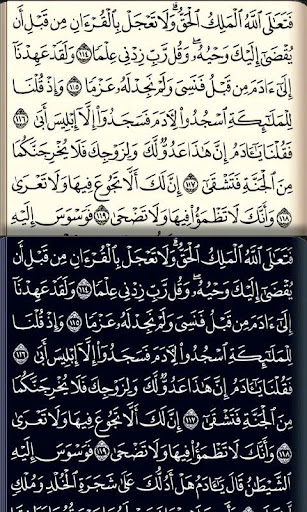 فَتَعَٰلَى ٱللَّهُ ٱلْمَلِكُ ٱلْحَقُّ ۗ وَلَا تَعْجَلْ بِٱلْقُرْءَانِ مِن قَبْلِ أَن
يُقْضَىٰٓ إِلَيْكَ وَحْيُهُۥ ۖ وَقُل رَّبِّ زِدْنِى عِلْمًا ١١٤ وَلَقَدْ عَهِدْنَآ
إِلَىٰٓ ءَادَمَ مِن قَبْلُ فَنَسِىَ وَلَمْ نَجِدْ لَهُۥ عَزْمًا ١١٥ وَإِذْ قُلْنَا
لِلْمَلَٰٓئِكَةِ ٱسْجُدُوا۟ لِءَادَمَ فَسَجَدُوٓا۟ إِلَّآ إِبْلِيسَ أَبَىٰ ١١٦
فَقُلْنَا يَٰٓـَٔادَمُ إِنَّ هَٰذَا عَدُوٌّ لَّكَ وَلِزَوْجِكَ فَلَا يُخْرِجَنَّكُمَا
مِنَ ٱلْجَنَّةِ فَتَشْقَىٰٓ ١١٧ إِنَّ لَكَ أَلَّا تَجُوعَ فِيهَا وَلَا تَعْرَىٰ
١١٨ وَأَنَّكَ لَا تَظْمَؤُا۟ فِيهَا وَلَا تَضْحَىٰ ١١٩ فَوَسْوَسَ إِلَيْهِ
فَتَعَٰلَى ٱللَّهُ ٱلْمَلِكُ ٱلْحَقُّ ۗ وَلَا تَعْجَلْ بِٱلْقُرْءَانِ مِن قَبْلِ أَن
يُقْضَىٰٓ إِلَيْكَ وَحْيُهُۥ ۖ وَقُل رَّبِّ زِدْنِى عِلْمًا ١١٤ وَلَقَدْ عَهِدْنَآ
إِلَىٰٓ ءَادَمَ مِن قَبْلُ فَنَسِىَ وَلَمْ نَجِدْ لَهُۥ عَزْمًا ١١٥ وَإِذْ قُلْنَا
لِلْمَلَٰٓئِكَةِ ٱسْجُدُوا۟ لِءَادَمَ فَسَجَدُوٓا۟ إِلَّآ إِبْلِيسَ أَبَىٰ ١١٦
فَقُلْنَا يَٰٓـَٔادَمُ إِنَّ هَٰذَا عَدُوٌّ لَّكَ وَلِزَوْجِكَ فَلَا يُخْرِجَنَّكُمَا
مِنَ ٱلْجَنَّةِ فَتَشْقَىٰٓ ١١٧ إِنَّ لَكَ أَلَّا تَجُوعَ فِيهَا وَلَا تَعْرَىٰ
١١٨ وَأَنَّكَ لَا تَظْمَؤُا۟ فِيهَا وَلَا تَضْحَىٰ ١١٩ فَوَسْوَسَ إِلَيْهِ
ٱلشَّيْطَٰنُ قَالَ يَٰٓـَٔادَمُ هَلْ أَدُلُّكَ عَلَىٰ شَجَرَةِ ٱلْخُلْدِ وَمُلْكٍ